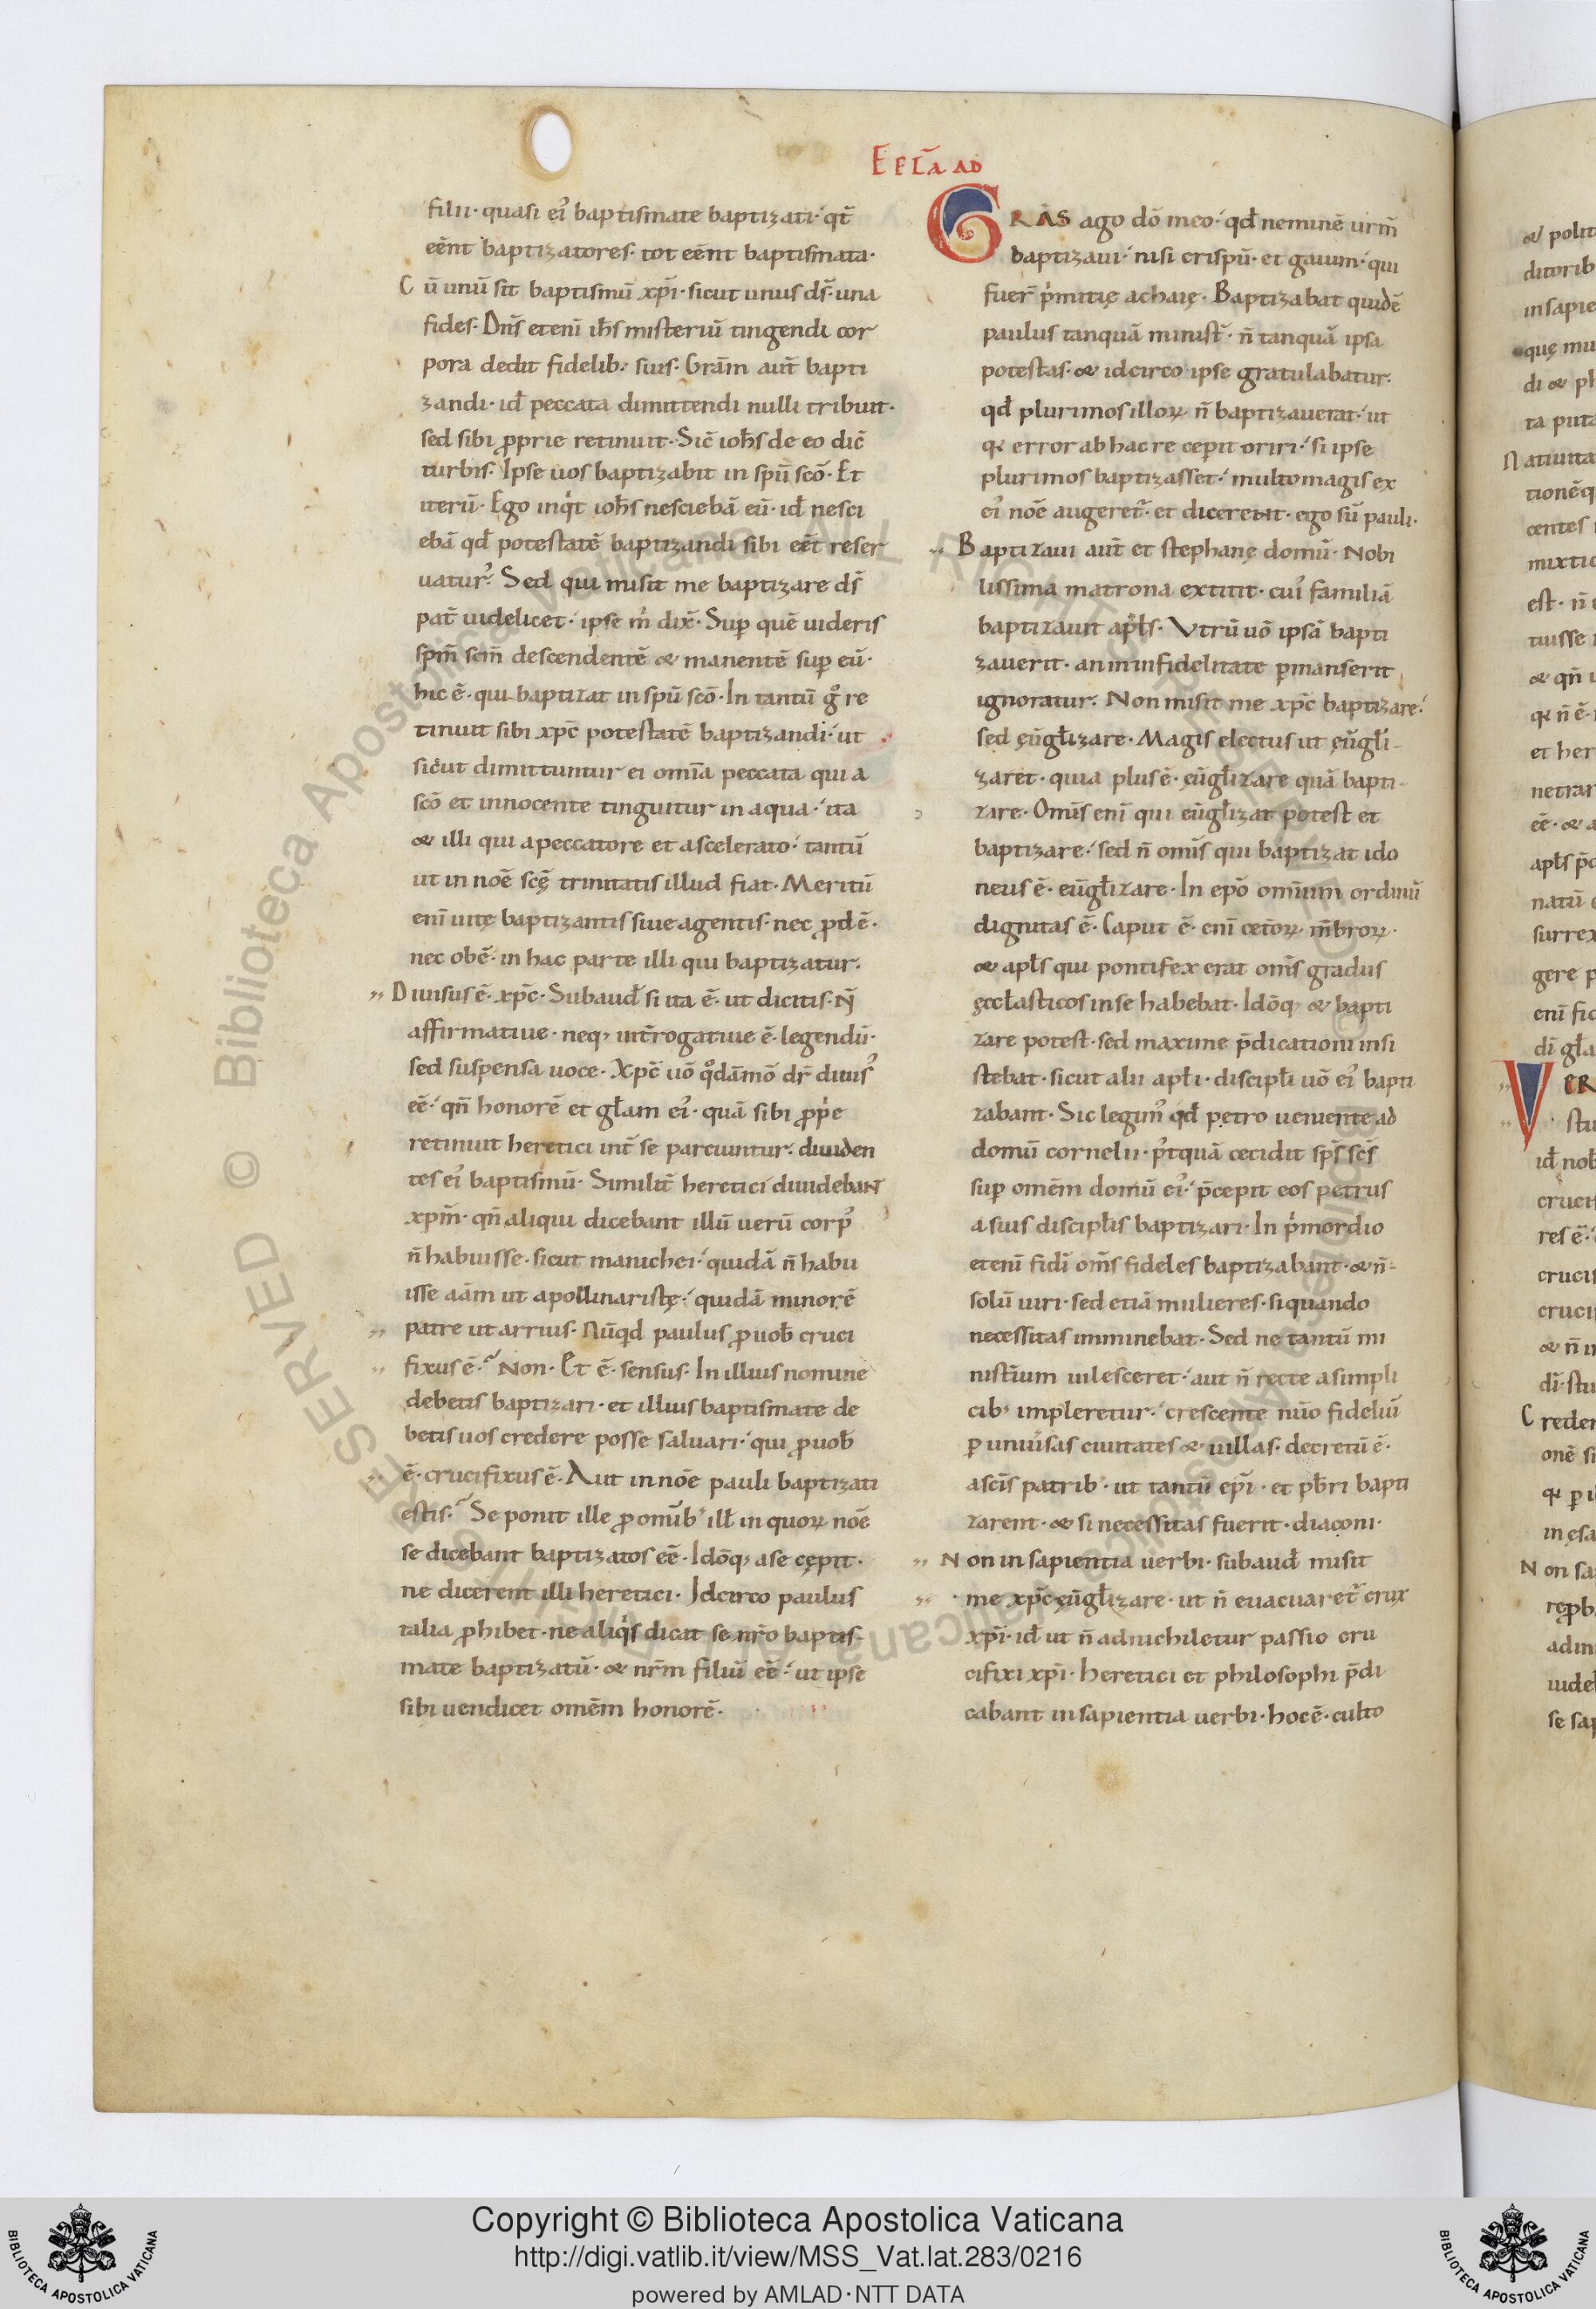 EPLA AD
filii· quasi ei᾽ baptismate baptizati· qt̄
eēnt baptizatores· tot eēnt baptismata·
Cū unū sit baptismū xpī· sicut unus ds̄· una
fides· Dn̄s etenī ih̄s misteriū tingendi cor
pora dedit fidelib; suis· Grām aut̄ bapti
zandi· id̄ peccata dimittendi nulli tribuit·
sed sibi ꝓprie retinuit· Sic̄ ioh̄s de eo dic̄
turbis· Ipse uos baptizabit in spū scō· Et
iterū· Ego inqͥt ioh̄s nesciebā eū· id̄ nesci
ebā qd̄ potestatē baptizandi sibi eēt reser
uatur᾽· Sed qui misit me baptizare ds̄
pat̄ uidelicet· ipse mͥ dix̄· Suꝑ quē uideris
spm̄ scm̄ descendentē & manentē suꝑ eū·
hic ē· qui baptizat in spū scō· In tantū gͦ re
tinuit sibi xpc̄ potestatē baptizandi· ut
sicut dimittuntur ei omīa peccata qui a
scō et innocente tinguitur in aqua· ita
& illi qui a peccatore et a scelerato· tantū
ut in noē scę̄ trinitatis illud fiat· Meritū
enī uitę baptizantis siue agentis· nec ꝓdē·
nec obē· in hac parte illi qui baptizatur·
Diuisus ē· xpc̄· Subaud̄ si ita ē· ut dicitis· N̄
affirmatiue· neq; int̄rogatiue ē· legendū·
sed suspensa uoce· Xpc̄ uō qͦdāmō dr̄ diuis᾽
eē· qn̄ honorē et gl̄am ei᾽· quā sibi ꝓpͥe
retinuit heretici int̄ se parciuntur· diuiden
tes ei᾽ baptismū· Similit̄ heretici diuidebant
xpm̄· qn̄ aliqui dicebant illū uerū corp᾽
n̄ habuisse· sicut manichei· quidā n̄ habu
isse aām ut apollinaristę· quidā minorē
patre ut arrius· Nūqd paulus ꝓ uob̄ cruci
fixus ē· Non· Et ē· sensus· In illius nomine
debetis baptizari· et illius baptismate de
betis uos credere posse saluari· qui ꝓ uob̄
ē· crucifixus ē· Aut in noē pauli baptizati
estis· Se ponit ille ꝓ omīb; ill̄ in quoꝝ noē
se dicebant baptizatos eē· Idōq; a se cępit·
ne dicerent illi heretici· Idcirco paulus
talia ꝓhibet· ne aliqͥs dicat se nr̄o baptis-
mate baptizatū· & nr̄m filiū eē· ut ipse
sibi uendicet omēm honorē·
GRĀS ago dō meo· qd̄ neminē urm̄
baptizaui· nisi crispū· et gaium· qui
fuer̄ pͥmitię achaię· Baptizabat quidē
paulus tanquā minist̄· n̄ tanquā ipsa
potestas· & idcirco ipse gratulabatur·
qd̄ plurimos illoꝝ n̄ baptizauerat· ut
q; error ab hac re cepit oriri· si ipse
plurimos baptizasset· multo magis ex
ei᾽ noē augeret̄· et diceret· ego sū pauli·
Baptizaui aut̄ et stephanę domū· Nobi
lissima matrona extitit· cui᾽ familiā
baptizauit apl̄s· Vtrū uō ipsā bapti
zauerit· an in infidelitate ꝑmanserit
ignoratur· Non misit me xpc̄ baptizare·
sed eūgl̄izare· Magis electus ut eūgl̄i-
zaret· quia plus ē· eūgl̄izare quā bapti-
zare· Omīs enī qui eūgl̄izat potest et
baptizare· sed n̄ omīs qui baptizat ido
neus ē· eūgl̄izare· In epō omīum ordinū
dignitas ē· Caput ē· enī cet̄oꝝ m̄broꝝ·
& apl̄s qui pontifex erat om̄s gradus
ęccl̄asticos in se habebat· Idōq; & bapti
zare potest· sed maxime p̄dicationi insi
stebat· sicut alii apl̄i· discipl̄i uō ei᾽ bapti
zabant· Sic legim᾽ qd̄ petro ueniente ad
domū cornelii· p᾽tquā cecidit sps̄ scs̄
suꝑ omēm domū ei᾽· p̄cepit eos petrus
a suis discipl̄is baptizari· In pͥmordio
etenī fidī om̄s fideles baptizabant· & n̄-
solū uiri· sed etiā mulieres· si quando
necessitas imminebat· Sed ne tantū mi
nist̄ium uilesceret· aut n̄ recte a simpli
cib; impleretur· crescente nūo fideliū
ꝑ uniūsas ciuitates & uillas· decretū ē·
a scīs patrib;· ut tantū epī· et pb̄ri bapti
zarent· & si necessitas fuerit· diaconi·
Non in sapientia uerbi· subaud̄ misit
me xpc̄ eūgl̄izare· ut n̄ euacuaret̄ crux
xpī· id̄ ut n̄ adnichiletur passio cru
cifixi xpī· heretici et philosophi p̄di
cabant in sapientia uerbi· hoc ē· culto
Copyright © Biblioteca Apostolica Vaticana
http://digi.vatlib.it/view/MSS_Vat.lat.283/0216
powered by AMLAD·NTT DATA